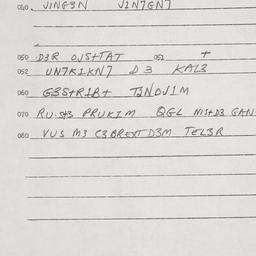 040 JING3N JIN7GN7
050 D3R OJS+TAT 051 +
052 UN7R1KN7 D3 KAL3
060 G3S+R1B+ T3NDJ1M
070 RU.S+3 PRUK1M QGL NIS+D3 GAN
080 VUS M3 C3BREXT D3M TEL3R